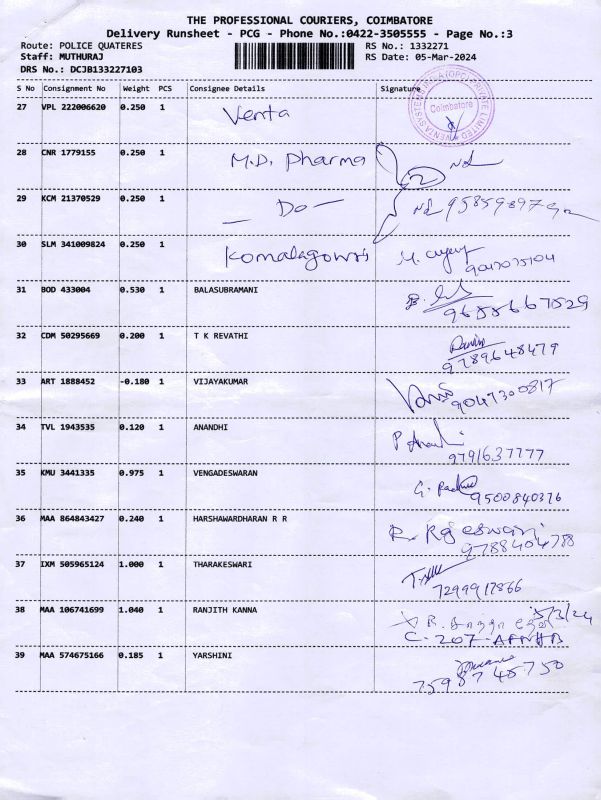 THE PROFESSIONAL COURIERS, COIMBATORE
Delivery Runsheet - PCG - Phone No.:0422-3505555 - Page No.:3
Route: POLICE QUATERES RS No.: 1332271
Staff: MUTHURAJ RS Date: 05-Mar-2024
DRS No.: DCJB133227103
S No Consignment No Weight PCS Consignee Details Signature
Coimbatore
27 VPL 222006620 0.250 1 Venta
28 CNR 1779155 0.250 1 M.D. Pharma
29 KCM 21370529 0.250 1 — Do —
30 SLM 341009824 0.250 1 Komalagowri
31 BOD 433004 0.530 1 BALASUBRAMANI
9688667529
32 CDM 50295669 0.200 1 T K REVATHI
9789648479
33 ART 1888452 -0.180 1 VIJAYAKUMAR
9047300817
34 TVL 1943535 0.120 1 ANANDHI
9791637777
35 KMU 3441335 0.975 1 VENGADESWARAN
9500840376
36 MAA 864843427 0.240 1 HARSHAWARDHARAN R R
9788404788
37 IXM 505965124 1.000 1 THARAKESWARI
7299917866
38 MAA 106741699 1.040 1 RANJITH KANNA 5/3/24
C-207-
39 MAA 574675166 0.185 1 YARSHINI
7598745750